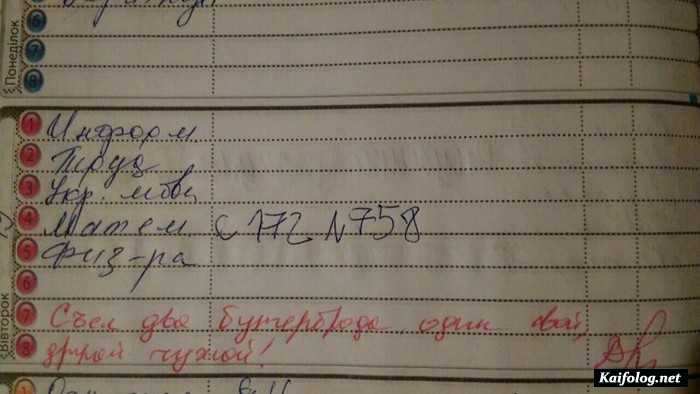 Понеділок
6
7
8
1 Информ
2 Труд
3 Укр. мова
4 Матем с 172 №758
5 Физ-ра
6
7 Съел два бутерброда один свой,
8 другой чужой!
Вівторок
Kaifolog.net